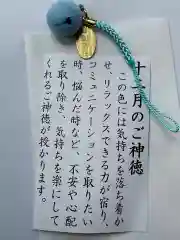 十二月のご神徳
この色には気持ちを落ち着か
せ、リラックスできる力が宿り、
コミュニケーションを取りたい
時、悩んだ時など、不安や心配
を取り除き、気持ちを楽にして
くれるご神徳が授かります。